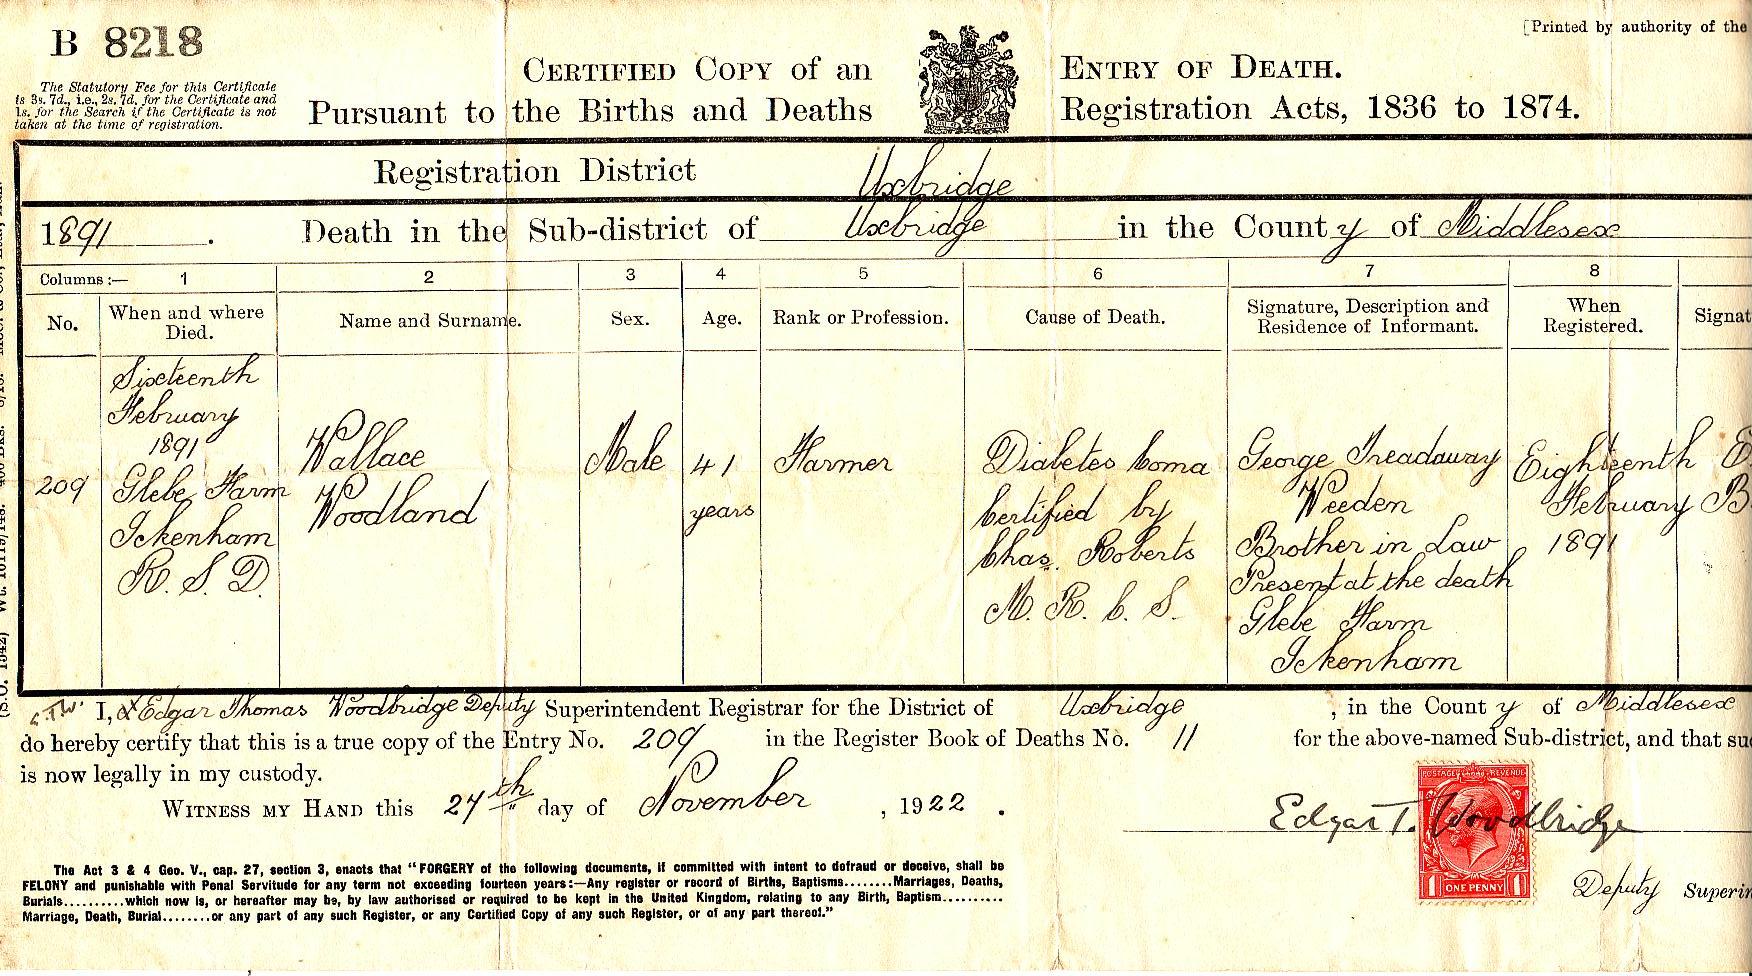 B 8218
[Printed by authority of the
The Statutory Fee for this Certificate
is 3s. 7d., i.e., 2s. 7d. for the Certificate and
1s. for the Search if the Certificate is not
taken at the time of registration.
CERTIFIED COPY of an ENTRY OF DEATH.
Pursuant to the Births and Deaths Registration Acts, 1836 to 1874.
Registration District Uxbridge
1891 . Death in the Sub-district of Uxbridge in the County of Middlesex
Columns:— 1 2 3 4 5 6 7 8
No. When and where Died. Name and Surname. Sex. Age. Rank or Profession. Cause of Death. Signature, Description and Residence of Informant. When Registered. Signat
209
Sixteenth
February
1891
Glebe Farm
Ickenham
R. S. D.
Wallace
Woodland
Male
41
years
Farmer
Diabetes Coma
Certified by
Chas. Roberts
M. R. C. S.
George Treadaway
Weeden
Brother in Law
Present at the death
Glebe Farm
Ickenham
Eighteenth
February
1891
E
B
E.T.W. I, Edgar Thomas Woodbridge Deputy Superintendent Registrar for the District of Uxbridge , in the County of Middlesex
do hereby certify that this is a true copy of the Entry No. 209 in the Register Book of Deaths No. 11 for the above-named Sub-district, and that suc
is now legally in my custody.
WITNESS MY HAND this 24th day of November , 1922 .
POSTAGE REVENUE
Edgar T. Woodbridge
1 ONE PENNY 1
Deputy Superin
The Act 3 & 4 Geo. V., cap. 27, section 3, enacts that "FORGERY of the following documents, if committed with intent to defraud or deceive, shall be
FELONY and punishable with Penal Servitude for any term not exceeding fourteen years:—Any register or record of Births, Baptisms........Marriages, Deaths,
Burials..........which now is, or hereafter may be, by law authorised or required to be kept in the United Kingdom, relating to any Birth, Baptism..........
Marriage, Death, Burial........or any part of any such Register, or any Certified Copy of any such Register, or of any part thereof."